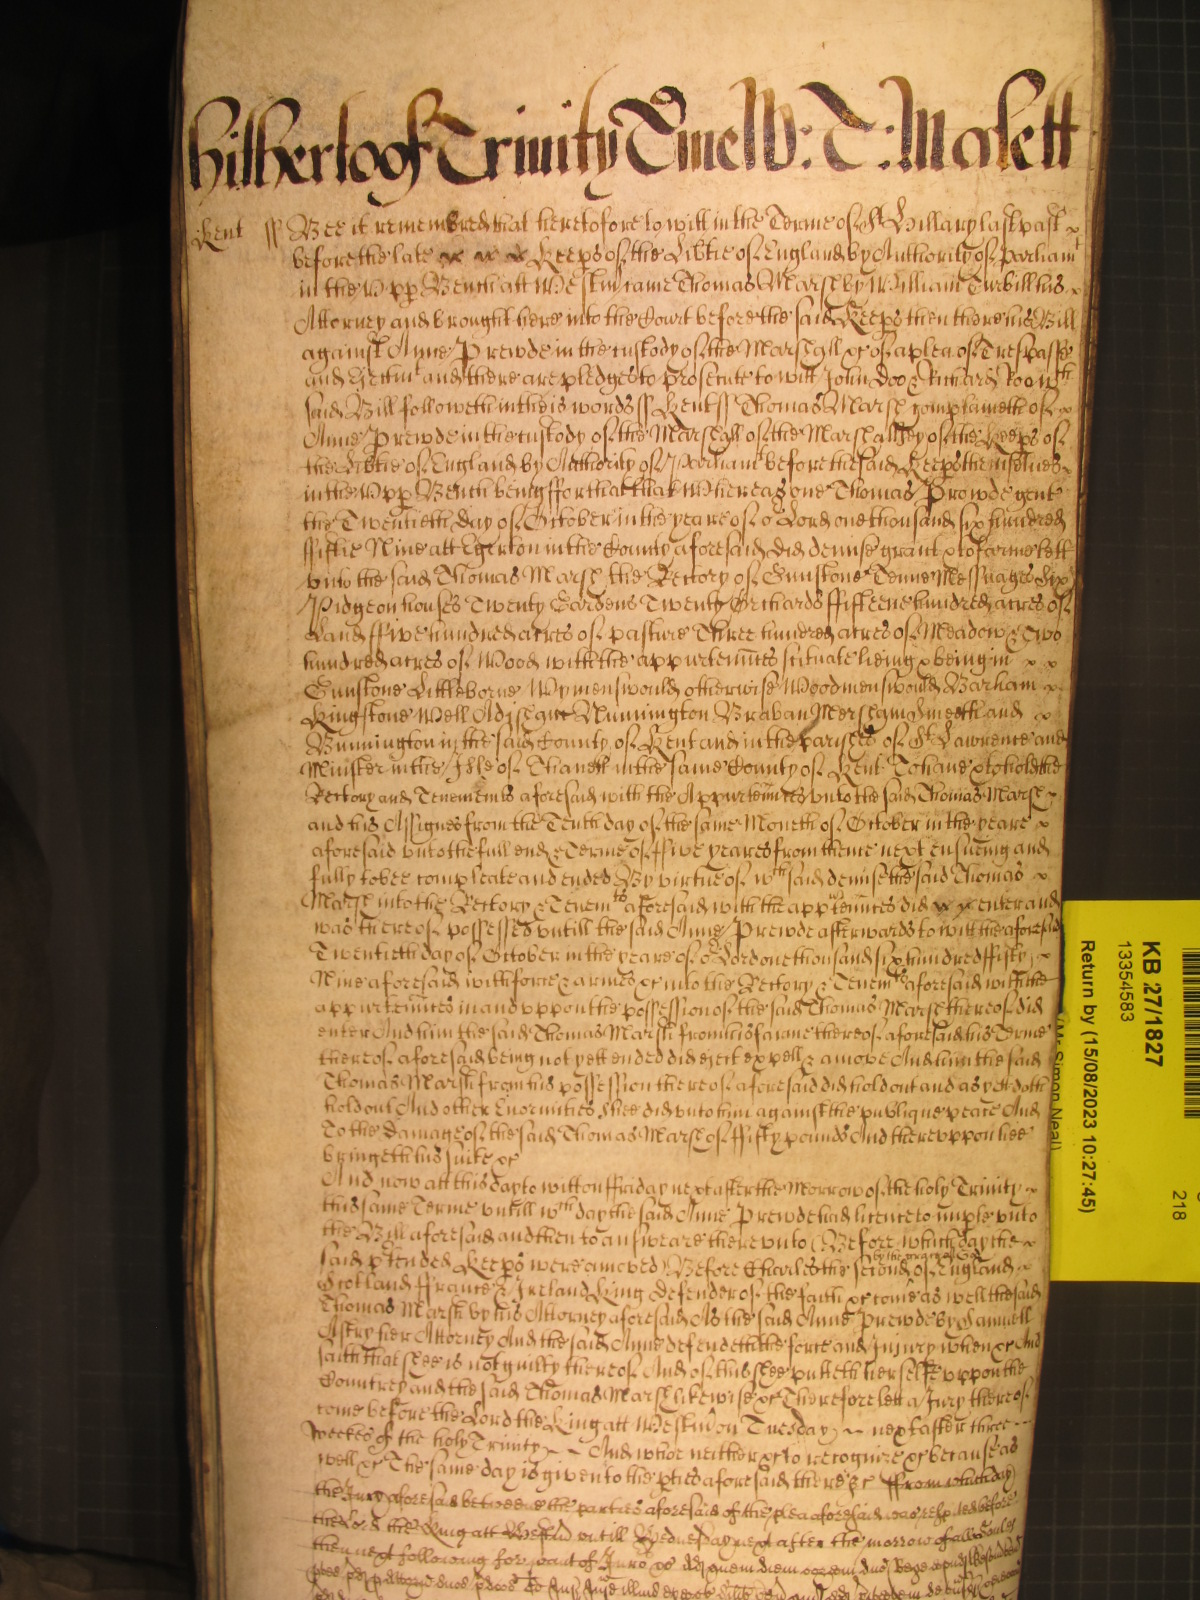 hitherto of Trinity Tme W: T: Malett
Kent ss Bee it remembred that heretofore to witt in the Terme of St Hillary last past
before the late Keeps of the Libtie of England by Authority of Parliam
in the Upp Bench att Westm came Thomas Marsh by William Turbill his
Attorney and brought here into the Court before the said Keeps then there his Bill
against Anne Prewde in the custody of the Marshall &c of a plea of Trespasse
and Ejectmt and there are pledges to prosecute to witt John Doo & Richard Roo wch
said Bill followeth in theis words ss Kent ss Thomas Marsh complaineth of
Anne Prewde in the custody of the Marshall of the Marshallsey of the Keeps of
the Libtie of England by Authority of Parliamt before the said Keeps themselves
in the Upp Bench being ffor that that Whereas one Thomas Prowde gent
the Twentieth day of October in the yeare of or Lord one thousand six hundred
ffiftie Nine att Egerton in the County aforesaid did demise grant & to farme lett
unto the said Thomas Marsh the Rectory of Gunstone Tenne Messuages Six
Pidgeon houses Twenty Gardens Twenty Orchards ffifteene hundred acres of
Land ffive hundred acres of pasture Three hundred acres of Meadow & Two
hundred acres of Wood with the appurtennces scituate lieing & being in
Gunstone Littleborne Wymenswould otherwise Woodmenswould Barham
Kingstone Well Adisham Nunnington Braban Mersham Smeeth and
Bunnington in the said County of Kent and in the parishes of St Lawrence and
Minster in the Isle of Thanett in the same County of Kent To have & to hold the
Rectory and Tenements aforesaid with the Appurtennces unto the said Thomas Marsh
and his Assignes from the Tenth day of the same Moneth of October in the yeare
aforesaid unto the full end & Terme of ffive yeares from thence next ensueing and
fully to bee compleate and ended By virtue of wch said demise the said Thomas
Marsh into the Rectory & Tenemts aforesaid with the appurtennces did enter and
was thereof possessed untill the said Anne Prewde afterwards to witt the aforesaid
Twentieth day of October in the yeare of or Lord one thousand six hundred ffifty
Nine aforesaid with force & armes &c into the Rectory & Tenemts aforesaid with the
appurtennces in and uppon the possession of the said Thomas Marsh thereof did
enter And him the said Thomas Marsh from his farme thereof aforesaid his Terme
thereof aforesaid being not yett ended did eject expell & amove And him the said
Thomas Marsh from his possession thereof aforesaid did hold out and as yet doth
hold out And other Enormities shee did unto him against the publique peace And
To the damage of the said Thomas Marsh of ffifty pounds And thereuppon hee
bringeth his suite &c
And now att this day to witt on ffriday next after the Morrow of the holy Trinity
this same Terme untill wch day the said Anne Prewde had licence to imple unto
the Bill aforesaid and then to answeare thereunto Before which day the
said ptended Keeps were amoved Before Charles the second by the grace of God of England
Scotland ffrance & Ireland King defender of the faith &c come as well the said
Thomas Marsh by his Attorney aforesaid As the said Anne Prewde by Samuell
Astry her Attorney And the said Anne defendeth the force and Injury when &c And
saith that shee is not guilty thereof And of this shee putteth herselfe uppon the
Countrey and the said Thomas Marsh likewise &c Therefore lett a Jury thereof
come before the Lord the King att Westm on Tuesday next after three
weekes of the holy Trinity And whoe neither &c to recognize &c because as
well &c The same day is given to the pties aforesaid there &c ffrom which day
the Jury aforesaid betweene the parties aforesaid of the plea aforesaid was respited before
the Lord the King att Westm untill Wednesday next after the morrow of all Soules
then next following for want of Jurors &c Ad quem diem coram dno Rege apud Westm
KB 27/1827
13354583
Return by (15/08/2023 10:27:45)
(Mr Simon Neal)
218